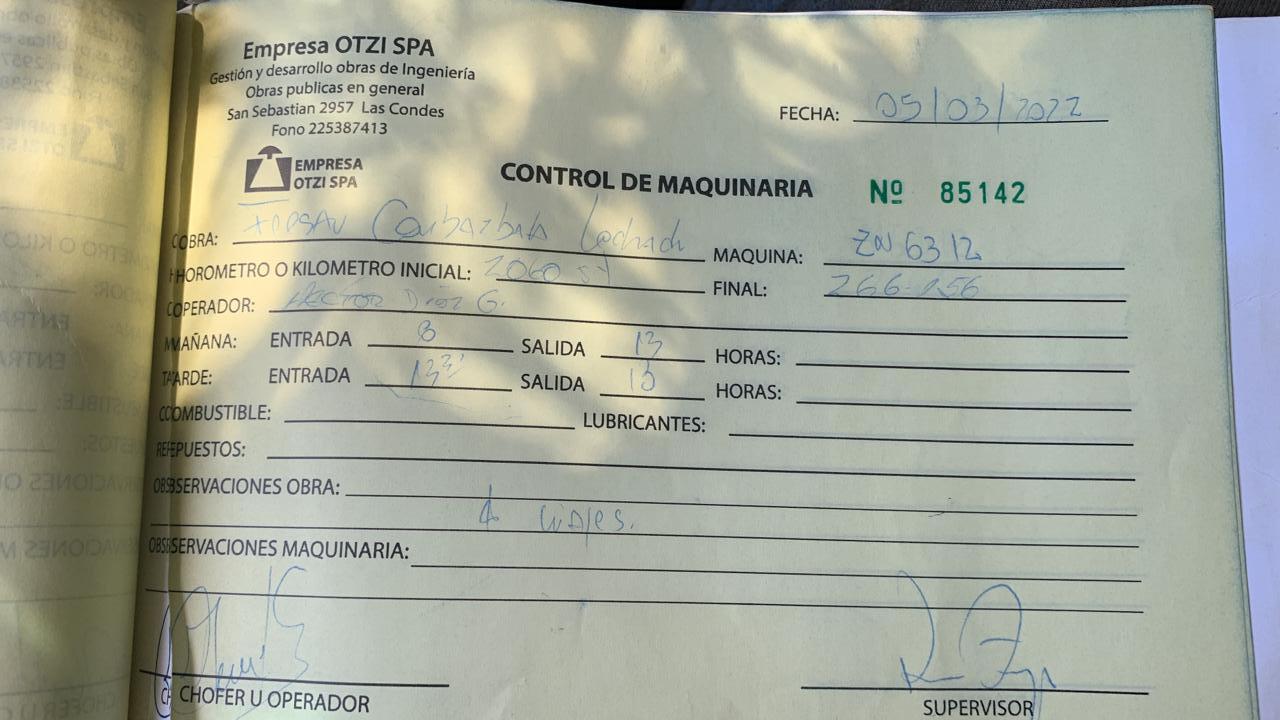 Empresa OTZI SPA
Gestión y desarrollo obras de Ingeniería
Obras publicas en general
San Sebastian 2957 Las Condes
Fono 225387413
FECHA: 05/03/2022
EMPRESA
OTZI SPA
CONTROL DE MAQUINARIA Nº 85142
OBRA: MAQUINA: ZN 6312
HOROMETRO O KILOMETRO INICIAL: FINAL:
OPERADOR: HECTOR DIAZ G.
MAÑANA: ENTRADA 8 SALIDA 13 HORAS:
TARDE: ENTRADA SALIDA HORAS:
COMBUSTIBLE: LUBRICANTES:
REPUESTOS:
OBSERVACIONES OBRA:
VIAJES.
OBSERVACIONES MAQUINARIA:
CHOFER U OPERADOR SUPERVISOR